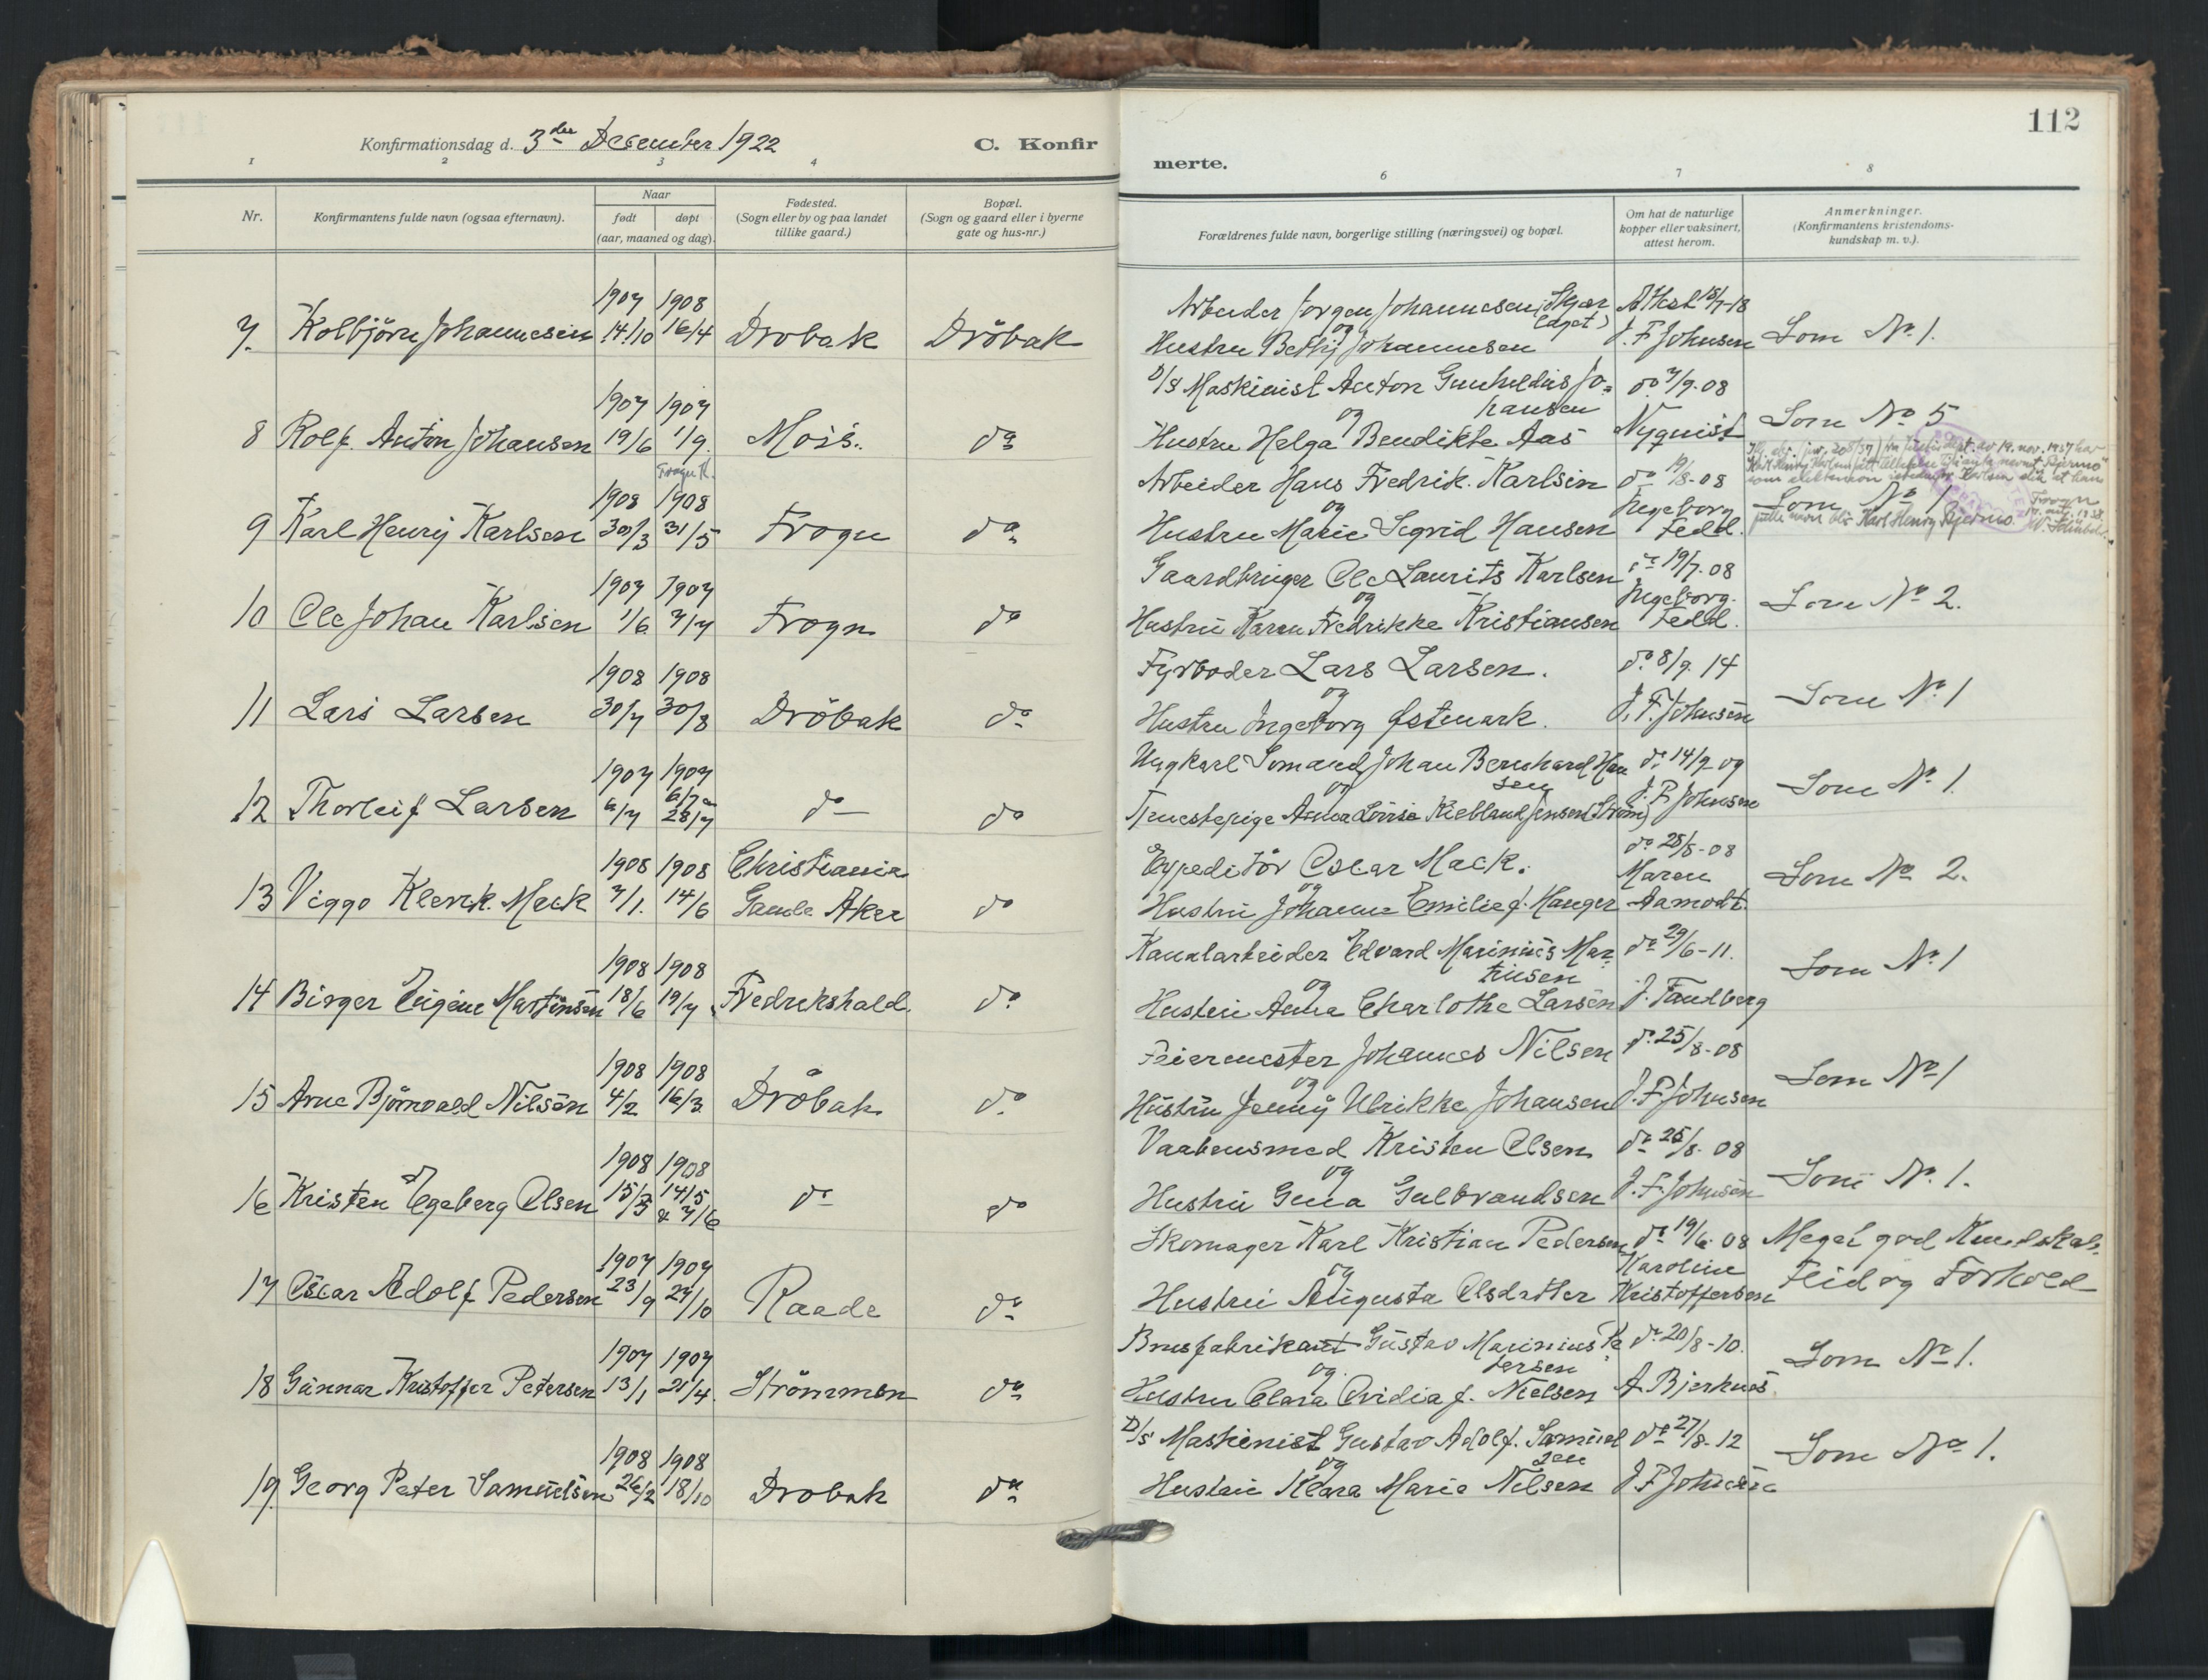 112
Konfirmationsdag d. 3die December 1922
C. Konfir
merte.
1 2 3 4 6 7 8
Nr.
Konfirmantens fulde navn (ogsaa efternavn).
Naar
født døpt
(aar, maaned og dag).
Fødested.
(Sogn eller by og paa landet
tillike gaard.)
Bopæl.
(Sogn og gaard eller i byerne
gate og hus-nr.)
Forældrenes fulde navn, borgerlige stilling (næringsvei) og bopæl.
Om hat de naturlige
kopper eller vaksinert,
attest herom.
Anmerkninger.
(Konfirmantens kristendoms-
kundskap m. v.).
1907 1908
7. Kolbjörn Johannesen 14/10 16/4 Drobak Dröbak
Arbeider Jorgen Johannesen
og
Hustru Bethy Johannesen
Attest 18/7-18
J. F. Johnsen
Som No 1.
1907 1907
8 Rolf Anton Johansen 19/6 1/9. Moss. do
D/S Maskinist Anton Gunheldus Jo=
hansen
og
Hustru Helga Bendikte Aas
do 7/9-08
Nyquist
Som No 5
Frogn K.
1908 1908
9 Karl Henry Karlsen 30/3 31/5 Frogn do
Arbeider Hans Fredrik Karlsen
og
Hustru Marie Sigrid Hansen
do 19/8-08
Ingeborg
Fedd.
Som No 1
fulle navn blir Karl Henry Bjermo.
1907 1907
10 Ole Johan Karlsen 1/6 7/7 Frogn do
Gaardbruger Ole Laurits Karlsen
og
Hustru Karen Fredrikke Kristiansen
19/7-08
Ingeborg
Fedd.
Som No 2.
1908 1908
11 Lars Larsen 30/7 30/8 Dröbak do
Fyrboder Lars Larsen.
og
Hustru Ingeborg Østmark.
do 8/9 14
J. F. Johnsen
Som No 1
1907 1907
12 Thorleif Larsen 6/7 28/7 do do
Ungkarl Somand Johan Bernhard Han
sen
og
Tjenestepige Anna Lovise Kielland Jensen (Ström)
do 14/9-09
J. F. Johnsen
Som No 1.
1908 1908 Christiania
13 Viggo Klenk. Mack 7/1. 14/6 Gamle Aker do
Expeditör Oscar Mack.
og
Hustru Johanne Emilie f. Hanger
do 28/8-08
Maren
Aamodt.
Som No 2.
1908 1908
14 Birger Eugene Martinsen 18/6 19/7 Fredrikshald. do
Kanalarbeider Edvard Marinius Mar
tinsen
og
Hustru Anna Charlothe Larsen
do 29/6-11.
J. Tandberg
Som No 1
1908 1908
15 Arne Björnvald Nilsen 4/2 16/3 Dröbak do
Feiermester Johannes Nilsen
og
Hustru Jenny Ulrikke Johansen
do 25/8-08
J. F. Johnsen
Som No 1
1908 1908
16 Kristen Egeberg Olsen 15/3 14/5 & 7/6 do do
Vaabensmed Kristen Olsen
og
Hustru Gina Gulbrandsen
do 25/8-08
J. F. Johnsen
Som No 1.
1907 1907
17 Oscar Adolf Pedersen 23/9 27/10 Raade do
Skomager Karl Kristian Pedersen
og
Hustru Augusta Olsdatter
do 19/6-08
Karoline
Kristoffersen
Meget god Kundskab,
Flid og Forhold
1907 1907
18 Gunnar Kristoffer Petersen 13/1 21/4. Strömmen do
Brusfabrikant Gustav Marinius Pe
tersen
og
Hustru Clara Ovidia f. Nielsen
do 20/8-10.
A. Bjerknes
Som No 1.
1908 1908
19 Georg Peter Samuelsen 26/2 18/10 Drobak do
D/S Maskinist Gustav Adolf Samuel
sen
og
Hustru Klara Marie Nilsen
do 27/8-12
J F Johnsen
Som No 1.